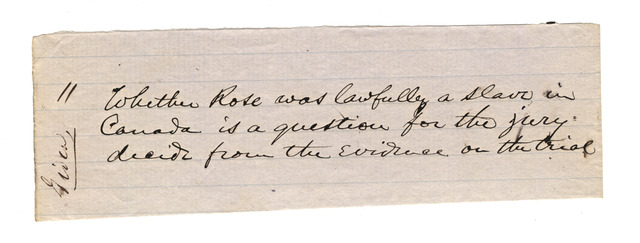 11 Whether Rose was lawfully a slave in
Canada is a question for the jury
decide from the Evidence on the trial
Given